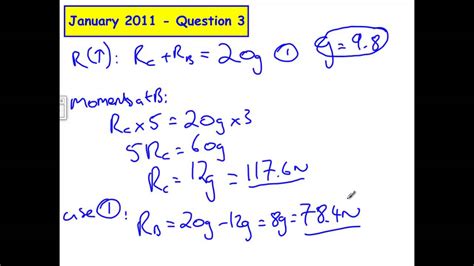 January 2011 - Question 3
R(↑): R_C + R_B = 20g ① g = 9.8
moments at B:
R_C × 5 = 20g × 3
5R_C = 60g
R_C = 12g = 117.6N
use ①: R_B = 20g - 12g = 8g = 78.4N